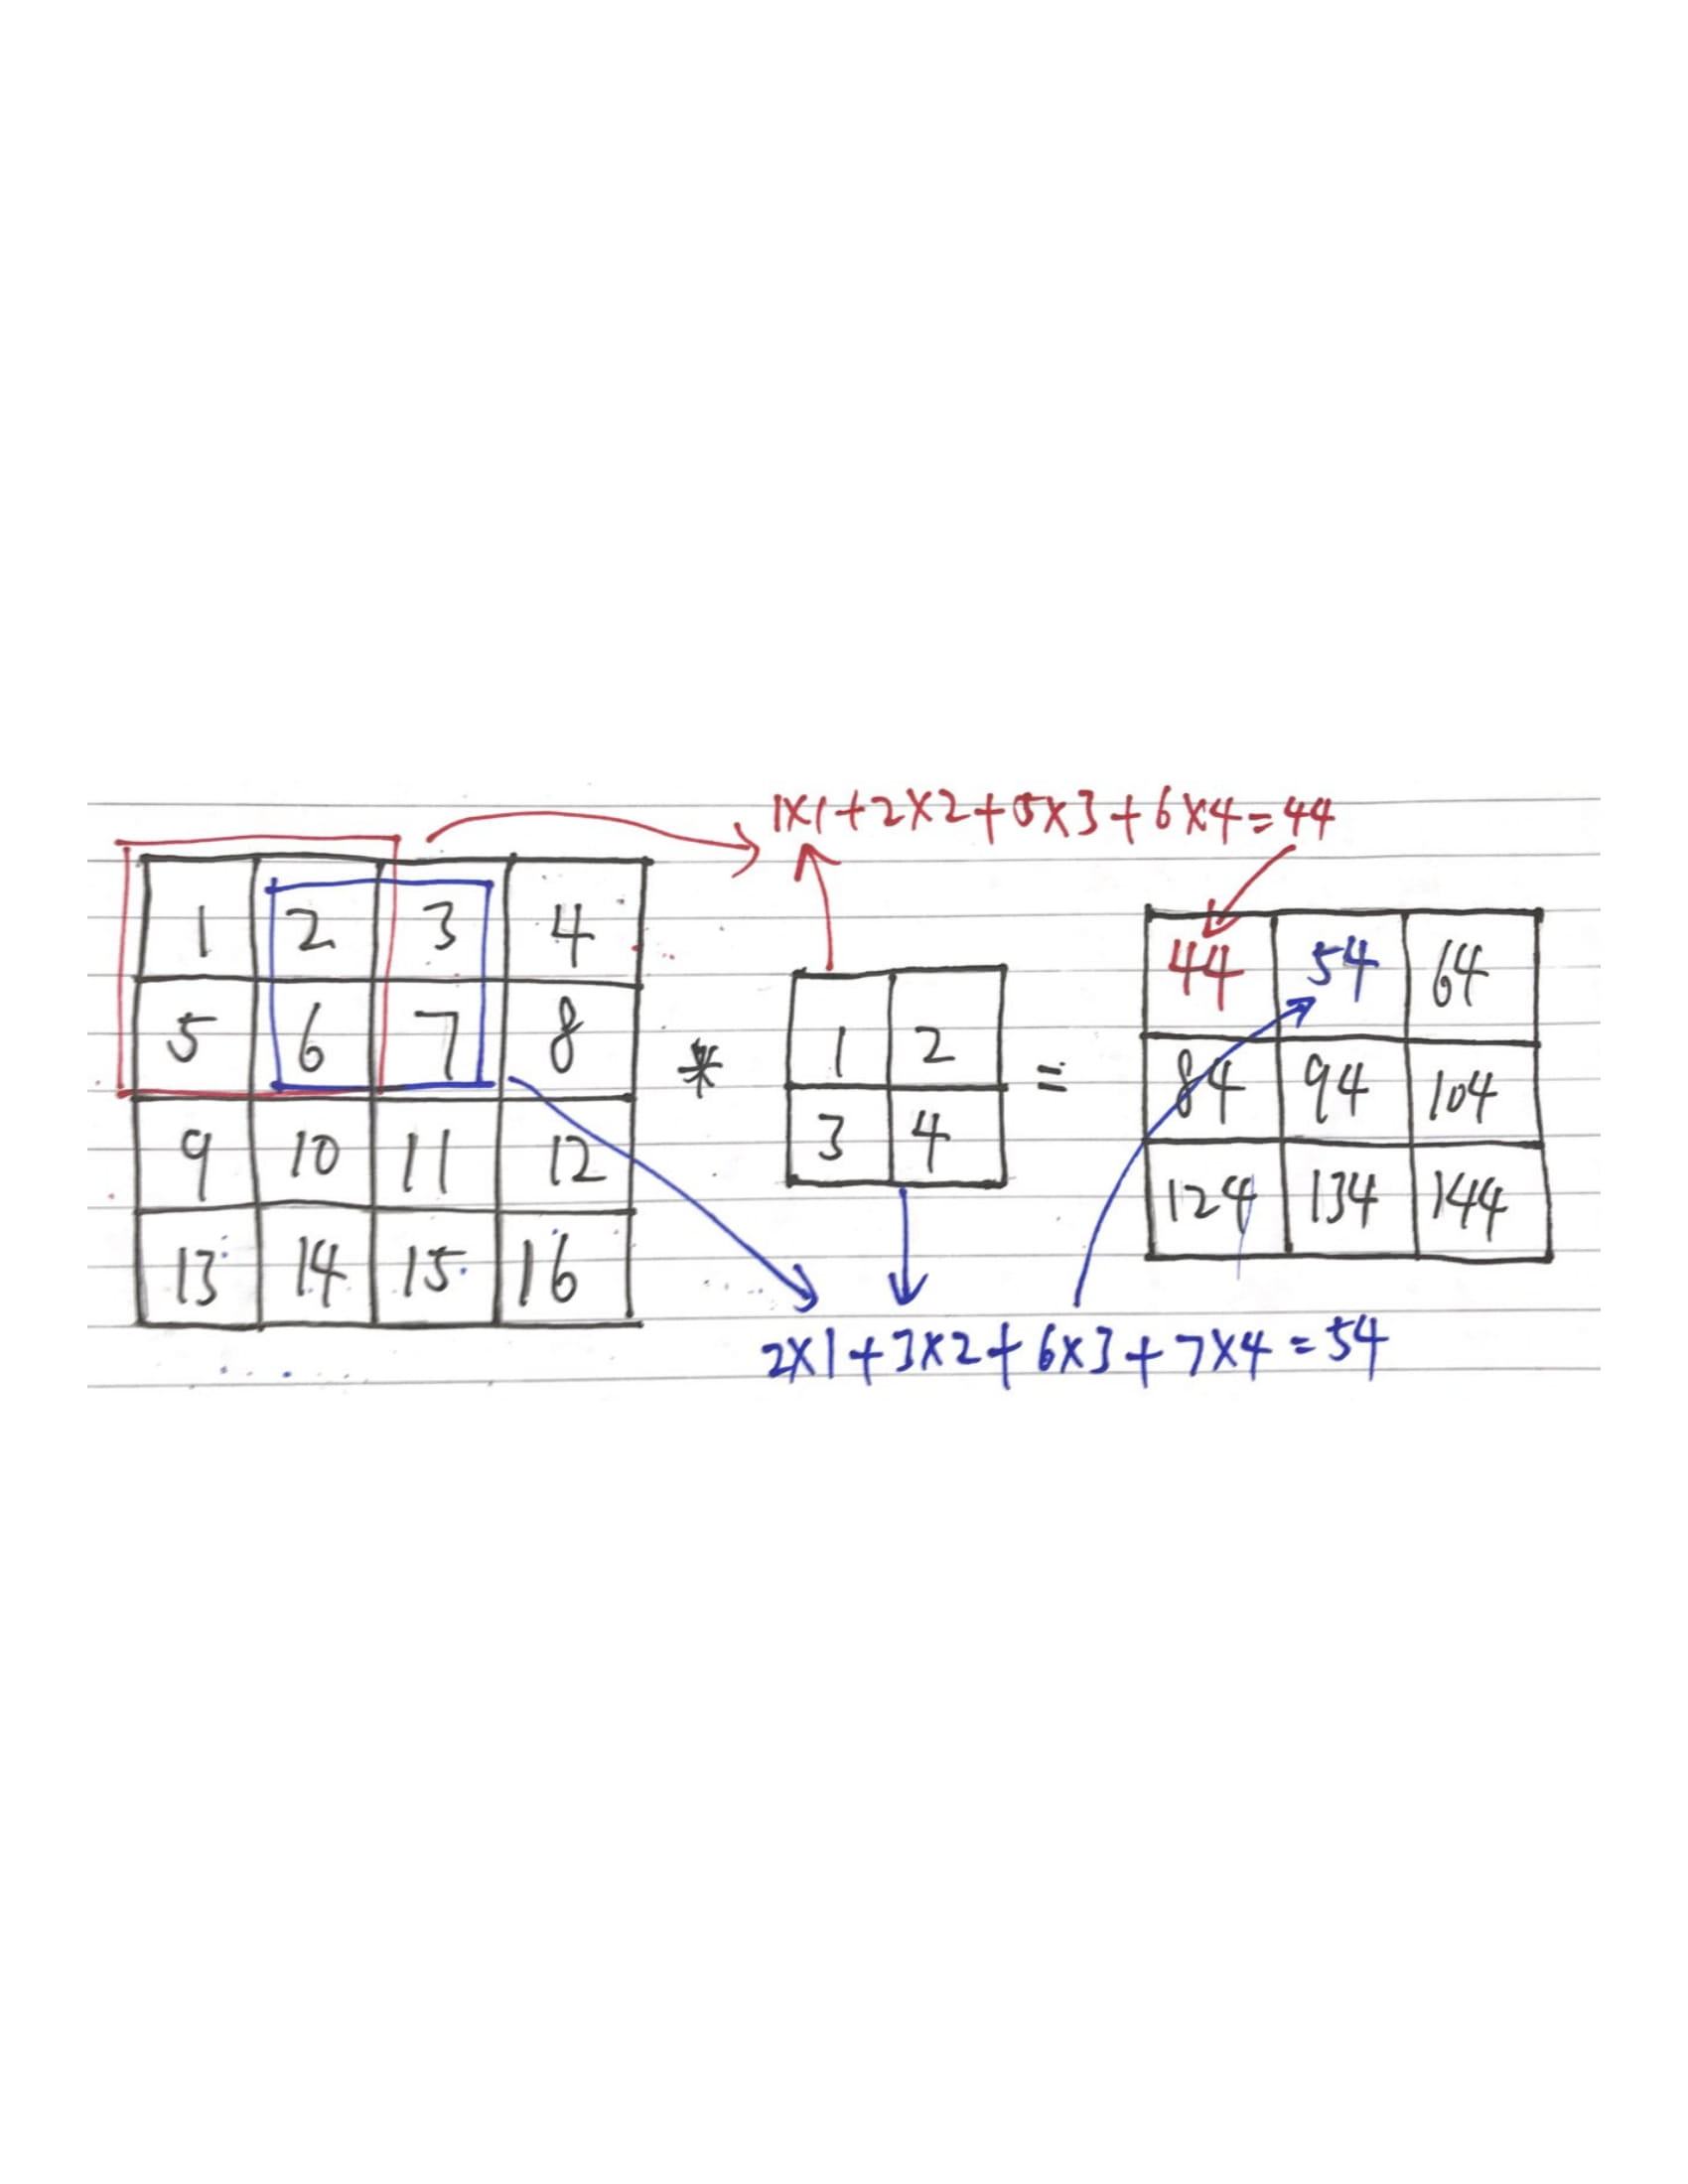 1×1+2×2+5×3+6×4=44
1 2 3 4
5 6 7 8
9 10 11 12
13 14 15 16
*
1 2
3 4
=
44 54 64
84 94 104
124 134 144
2×1+3×2+6×3+7×4=54